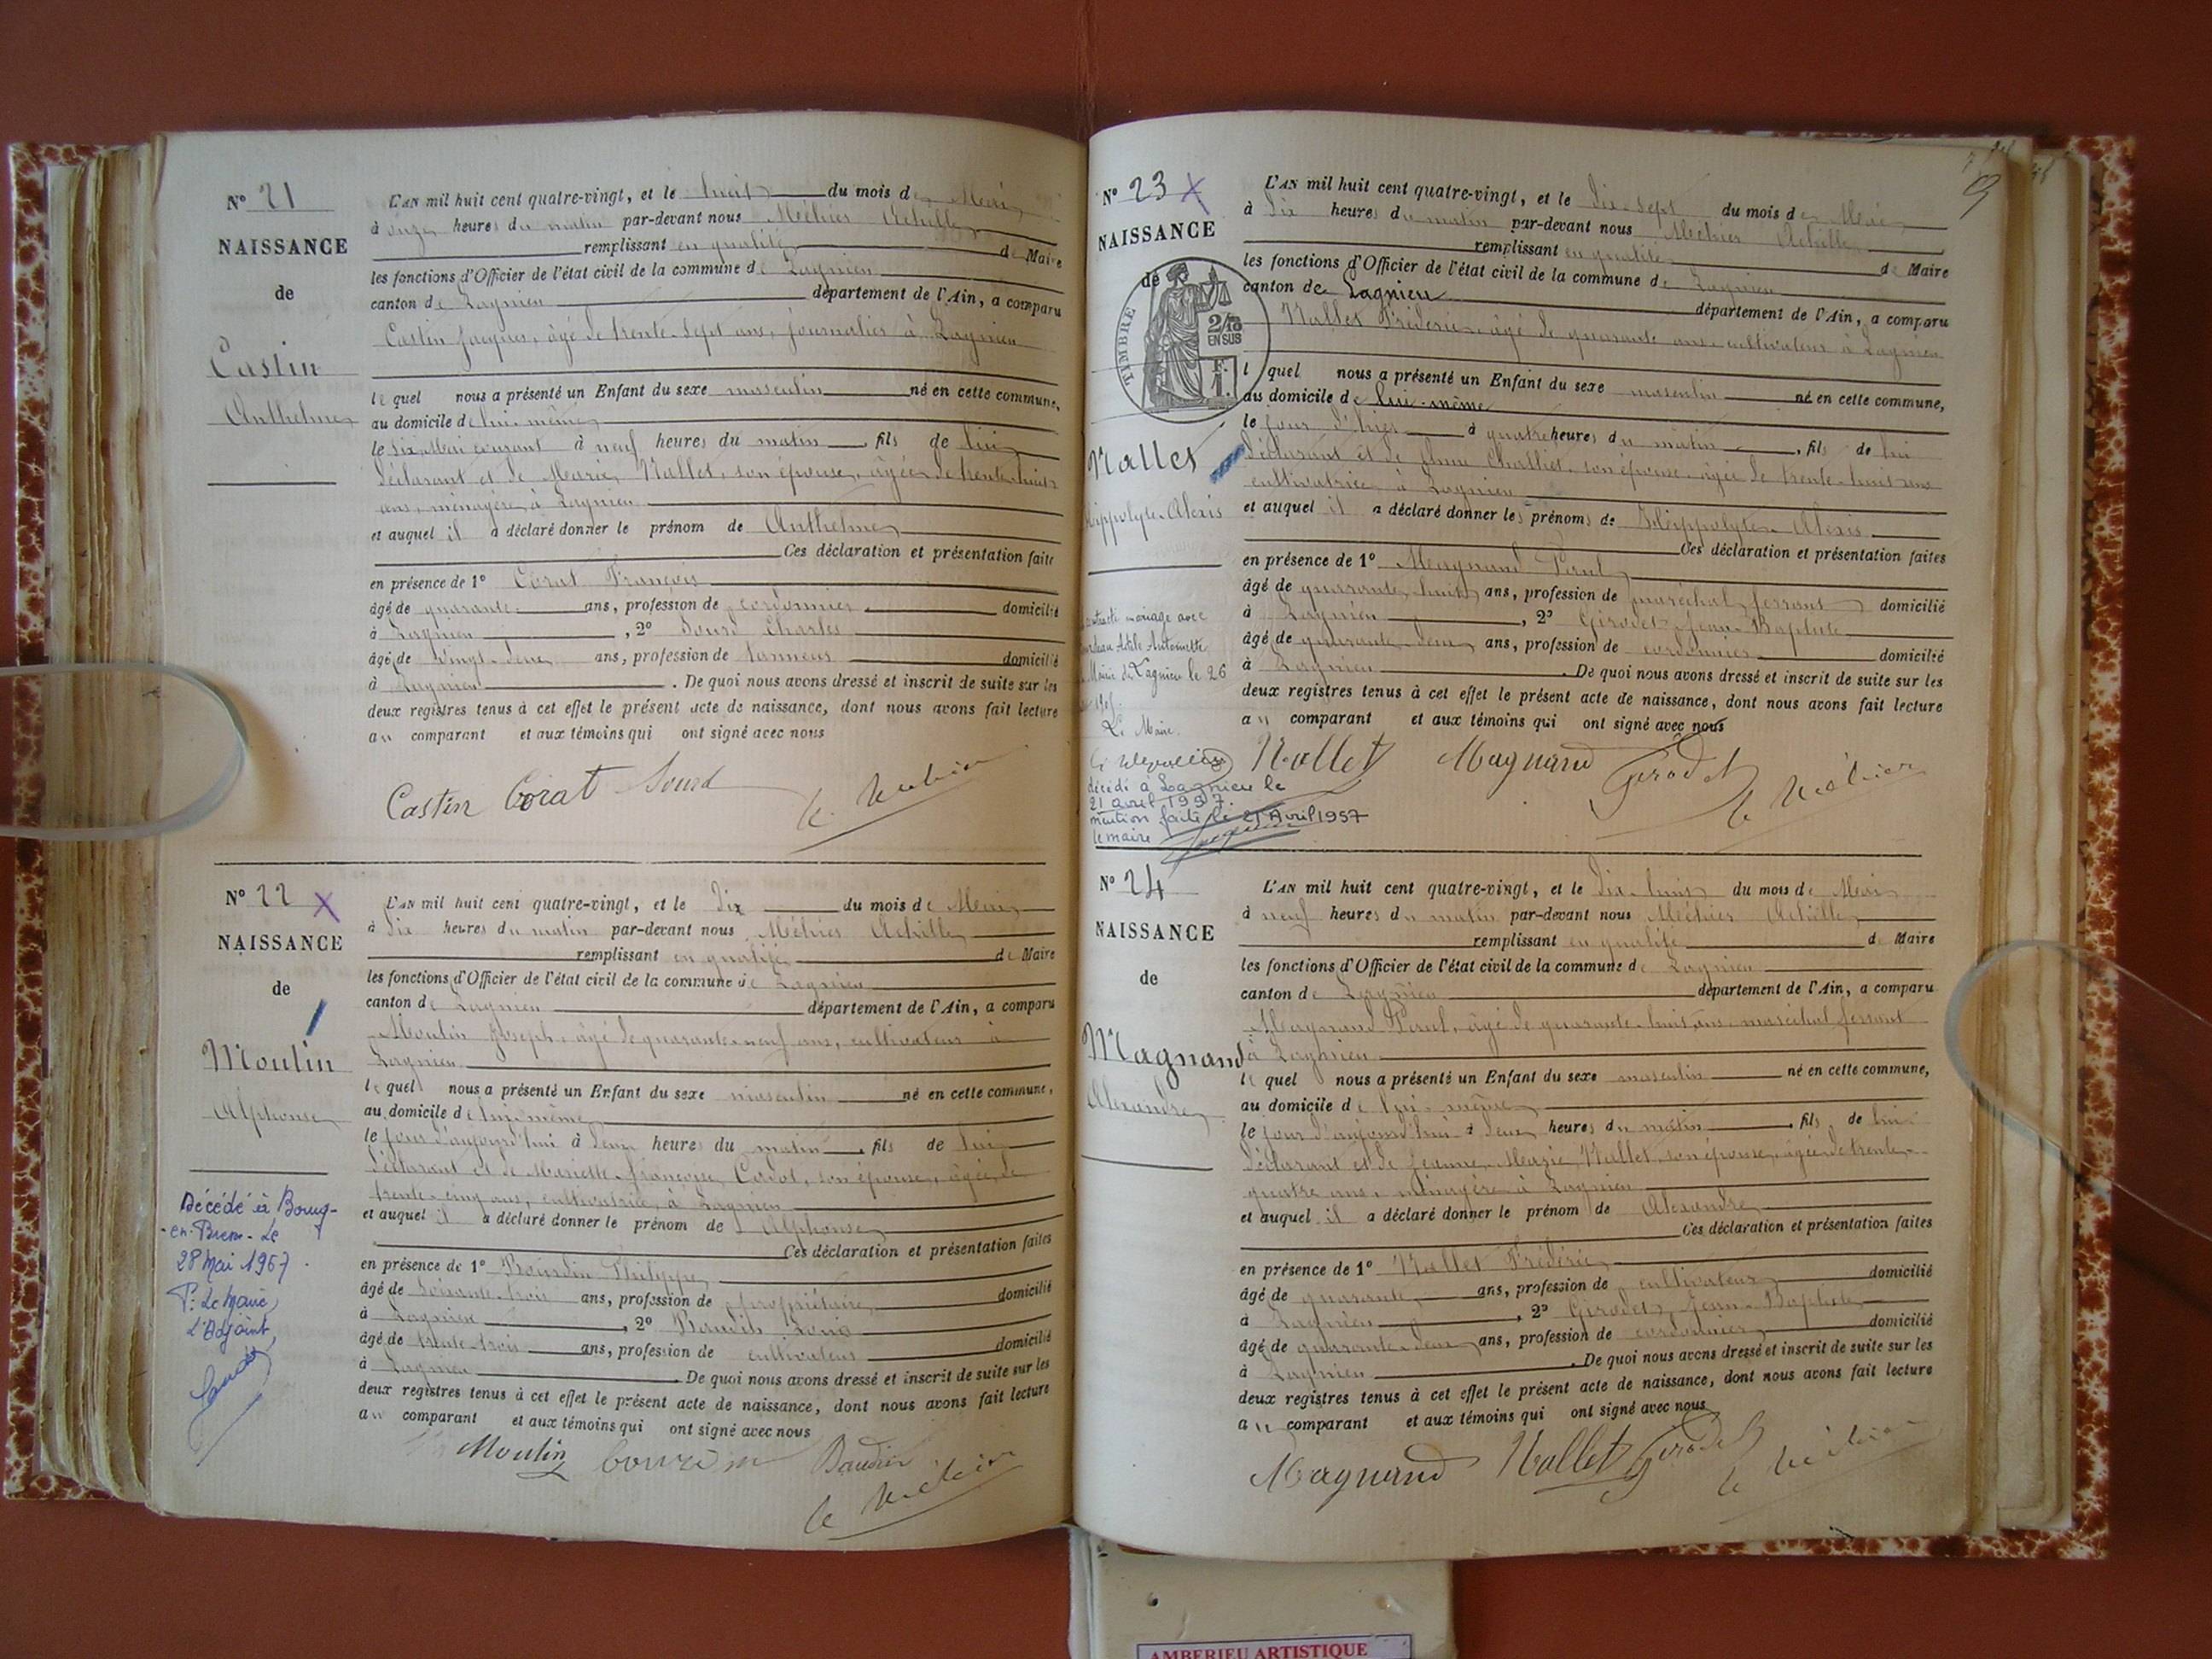 N° 21
NAISSANCE
de
Castin
Anthelme
L'AN mil huit cent quatre-vingt, et le huit du mois de Mai
à onze heures du matin par-devant nous Méhier Achille
remplissant en qualité de Maire
les fonctions d'Officier de l'état civil de la commune de Lagnieu
canton de Lagnieu département de l'Ain, a comparu
Castin Jacques, âgé de trente-sept ans, journalier à Lagnieu
lequel nous a présenté un Enfant du sexe masculin né en cette commune,
au domicile de lui-même
le six Mai courant à neuf heures du matin, fils de lui
déclarant et de Marie Nallet, son épouse, âgée de trente-huit
ans, ménagère à Lagnieu
et auquel il a déclaré donner le prénom de Anthelme
Ces déclaration et présentation faite
en présence de 1° Corat François
âgé de quarante ans, profession de cordonnier domicilié
à Lagnieu, 2° Sourd Charles
âgé de vingt-deux ans, profession de tanneur domicilié
à Lagnieu. De quoi nous avons dressé et inscrit de suite sur les
deux registres tenus à cet effet le présent acte de naissance, dont nous avons fait lecture
au comparant et aux témoins qui ont signé avec nous
Castin Corat Sourd
N° 22 X
NAISSANCE
de
Moulin
Alphonse
Décédé à Bourg-
-en-Bresse-Le
28 Mai 1967.
P. Le Maire,
L'Adjoint,
L'AN mil huit cent quatre-vingt, et le dix du mois de Mai
à dix heures du matin par-devant nous Méhier Achille
remplissant en qualité de Maire
les fonctions d'Officier de l'état civil de la commune de Lagnieu
canton de Lagnieu département de l'Ain, a comparu
Moulin Joseph, âgé de quarante-neuf ans, cultivateur à
Lagnieu
lequel nous a présenté un Enfant du sexe masculin né en cette commune,
au domicile de lui-même
le jour d'aujourd'hui à deux heures du matin, fils de lui
déclarant et de Mariette Françoise, son épouse, âgée de
trente-cinq ans, cultivatrice à Lagnieu
et auquel il a déclaré donner le prénom de Alphonse
Ces déclaration et présentation faites
en présence de 1° Philippe
âgé de soixante-trois ans, profession de propriétaire domicilié
à Lagnieu, 2° Louis
âgé de trente-trois ans, profession de cultivateur domicilié
à Lagnieu. De quoi nous avons dressé et inscrit de suite sur les
deux registres tenus à cet effet le présent acte de naissance, dont nous avons fait lecture
au comparant et aux témoins qui ont signé avec nous
Moulin
N° 23 X
NAISSANCE
de
TIMBRE
2/10
EN SUS
F.
1.
Nallet
Hippolyte-Alexis
mariage avec
Antoinette
Lagnieu le 26
Le Maire
décédé à Lagnieu le
21 avril 1957.
mention faite le 21 Avril 1957
le maire
L'AN mil huit cent quatre-vingt, et le dix-sept du mois de Mai
à dix heures du matin par-devant nous Méhier Achille
remplissant en qualité de Maire
les fonctions d'Officier de l'état civil de la commune de Lagnieu
canton de Lagnieu département de l'Ain, a comparu
Nallet Frédéric, âgé de quarante ans, cultivateur à Lagnieu
lquel nous a présenté un Enfant du sexe masculin né en cette commune,
au domicile de lui-même
le jour d'hier à quatre heures du matin, fils de lui
déclarant et de Anne Challiet, son épouse, âgée de trente-huit ans
cultivatrice à Lagnieu
et auquel il a déclaré donner les prénoms de Hippolyte-Alexis
Ces déclaration et présentation faites
en présence de 1° Magnand Paul
âgé de quarante-huit ans, profession de maréchal ferrant domicilié
à Lagnieu, 2° Girodet Jean-Baptiste
âgé de quarante-deux ans, profession de cordonnier domicilié
à Lagnieu. De quoi nous avons dressé et inscrit de suite sur les
deux registres tenus à cet effet le présent acte de naissance, dont nous avons fait lecture
au comparant et aux témoins qui ont signé avec nous
Nallet Magnand Girodet
N° 24
NAISSANCE
de
Magnand
Alexandre
L'AN mil huit cent quatre-vingt, et le dix-huit du mois de Mai
à neuf heures du matin par-devant nous Méhier Achille
remplissant en qualité de Maire
les fonctions d'Officier de l'état civil de la commune de Lagnieu
canton de Lagnieu département de l'Ain, a comparu
Magnand Paul, âgé de quarante-huit ans, maréchal ferrant
à Lagnieu
lequel nous a présenté un Enfant du sexe masculin né en cette commune,
au domicile de lui-même
le jour d'aujourd'hui à deux heures du matin, fils de lui
déclarant et de Jeanne-Marie Nallet, son épouse, âgée de trente-
quatre ans, ménagère à Lagnieu
et auquel il a déclaré donner le prénom de Alexandre
Ces déclaration et présentation faites
en présence de 1° Nallet Frédéric
âgé de quarante ans, profession de cultivateur domicilié
à Lagnieu, 2° Girodet Jean-Baptiste
âgé de quarante-deux ans, profession de cordonnier domicilié
à Lagnieu. De quoi nous avons dressé et inscrit de suite sur les
deux registres tenus à cet effet le présent acte de naissance, dont nous avons fait lecture
au comparant et aux témoins qui ont signé avec nous
Magnand Nallet Girodet
AMBERIEU ARTISTIQUE